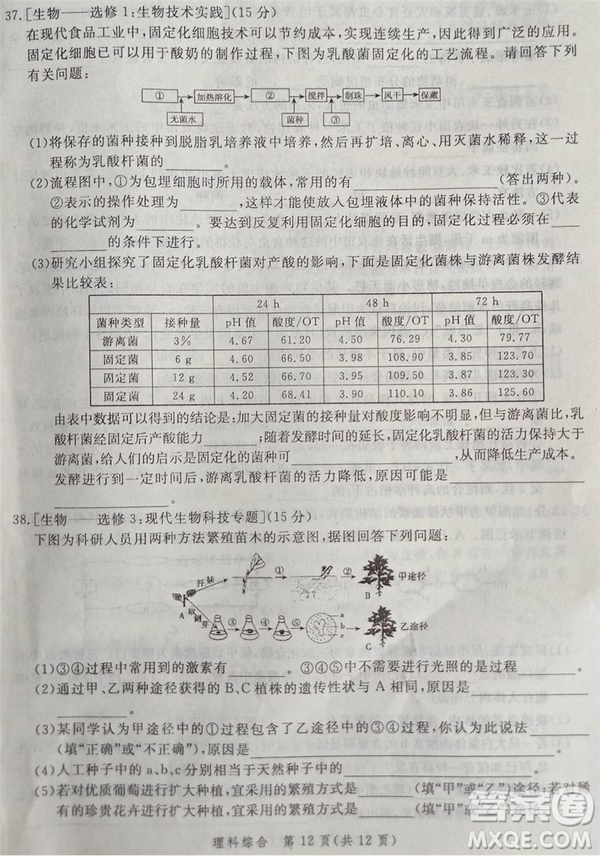 37.[生物——选修1:生物技术实践](15分)
在现代食品工业中,固定化细胞技术可以节约成本,实现连续生产,因此得到广泛的应用。
固定化细胞已可以用于酸奶的制作过程,下图为乳酸菌固定化的工艺流程。请回答下列
有关问题:
① 加热溶化 ② 搅拌 制珠 风干 保藏
无菌水 菌种 ③
(1)将保存的菌种接种到脱脂乳培养液中培养,然后再扩培、离心、用灭菌水稀释,这一过
程称为乳酸杆菌的________。
(2)流程图中,①为包埋细胞时所用的载体,常用的有________(答出两种)。
②表示的操作处理为________,这样才能使放入包埋液体中的菌种保持活性。③代表
的化学试剂为________。要达到反复利用固定化细胞的目的,固定化过程必须在____
________的条件下进行。
(3)研究小组探究了固定化乳酸杆菌对产酸的影响,下面是固定化菌株与游离菌株发酵结
果比较表:
24 h 48 h 72 h
菌种类型 接种量 pH值 酸度/OT pH值 酸度/OT pH值 酸度/OT
游离菌 3% 4.67 61.20 4.50 76.29 4.30 79.77
固定菌 6 g 4.60 66.50 3.98 108.90 3.85 123.70
固定菌 12 g 4.52 66.50 3.95 110.50 3.71 123.30
固定菌 24 g 4.20 68.41 3.90 110.50 3.26 125.60
由表中数据可以得到的结论是:加大固定菌的接种量对酸度影响不明显,但与游离菌比,乳
酸杆菌经固定后产酸能力________。随着发酵时间的延长,固定乳酸杆菌的活力保持大于
游离菌,给人们的启示是固定化的乳酸杆菌可以________,从而降低生产成本。
发酵进行到一定时间后,游离乳酸杆菌的活力降低,原因可能是________。
38.[生物——选修3:现代生物科技专题](15分)
下图为科研人员用两种方法繁殖苗木的示意图,据图回答下列问题:
扦插 ① ② B 甲途径
A 取芽 ③ ④ ⑤ a b c C 乙途径
(1)③④过程中常用的激素有________。③④⑤中不需要进行光照的是过程________。
(2)通过甲、乙两种途径获得的B、C植株的遗传性状与A相同,原因是________
________。
(3)某同学认为甲途径中的①过程包含了乙途径中的③④过程,你认为此说法________
(填“正确”或“不正确”),原因是________。
(4)人工种子中的a、b、c分别相当于天然种子中的________。
(5)若对优质葡萄进行扩大种植,宜采用的繁殖方式为________(填“甲”或“乙”)途径;若对稀
有的珍贵花卉进行扩大种植,宜采用的繁殖方式为________(填“甲”或“乙”)途径。
理科综合 第12页(共12页)